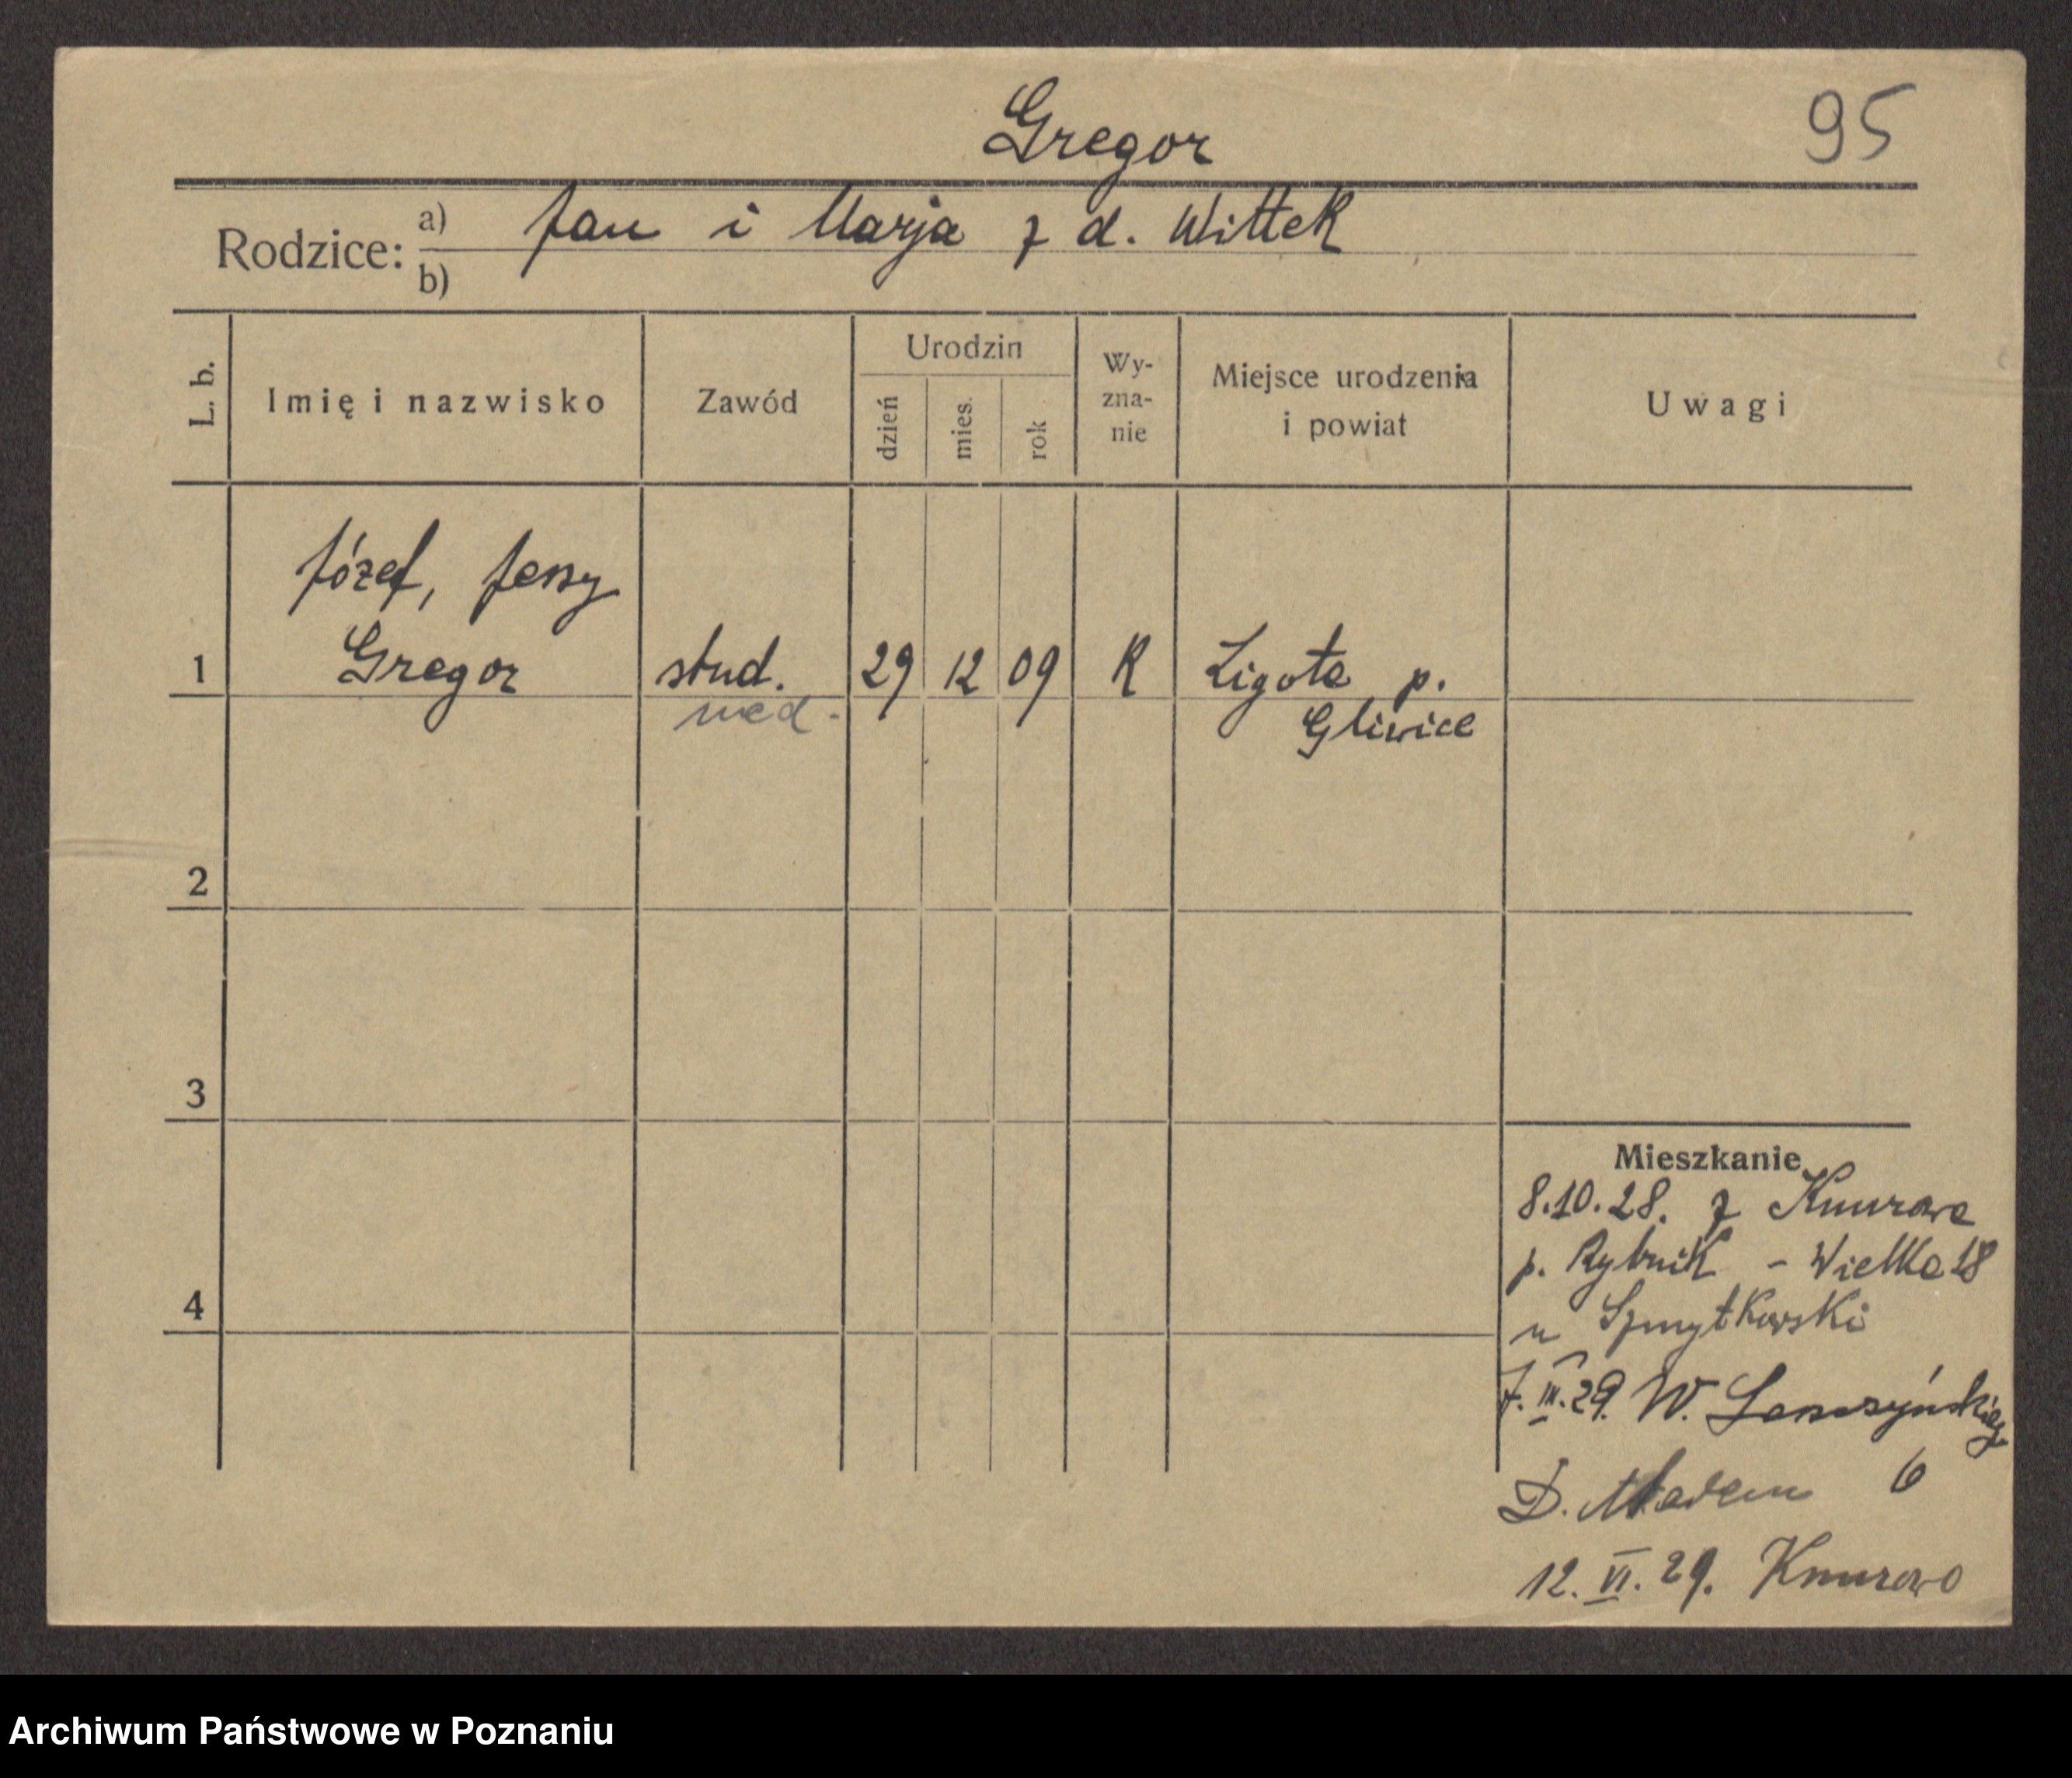 Gregor
95
Rodzice: a) Jan i Marja z d. Wittek
b)
L. b.
Imię i nazwisko
Zawód
Urodzin
dzień
mies.
rok
Wy-
zna-
nie
Miejsce urodzenia
i powiat
Uwagi
Józef, Jerzy
1 Gregor stud. 29 12 09 K Ligota p.
med. Gliwice
2
3
4
Mieszkanie
8.10.28. z Knurowa
p. Rybnik - Wielka 18
u Szmytkowski
7.III.29. W.
D. 6
12.VI.29. Knurowo
Archiwum Państwowe w Poznaniu